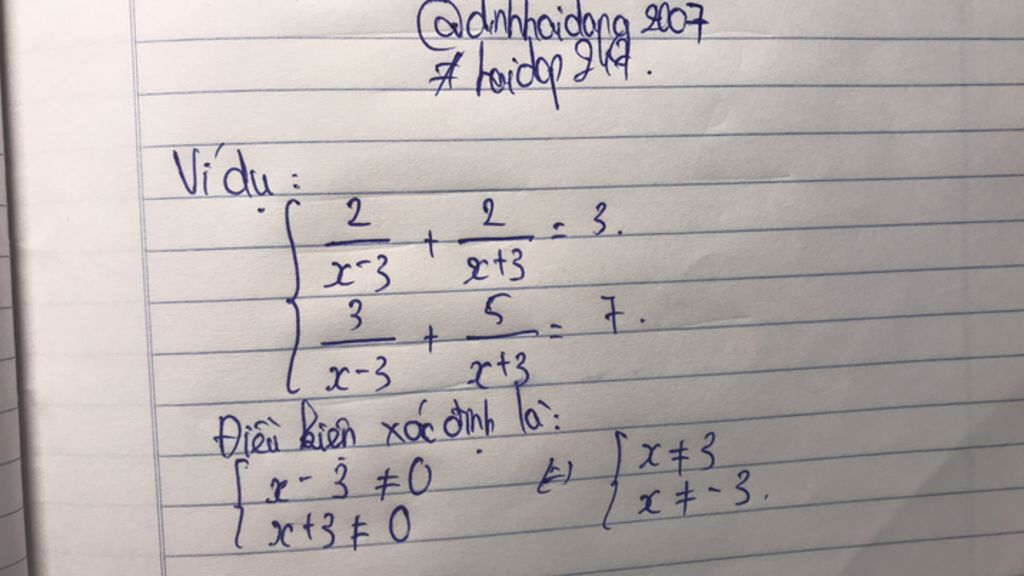 @dinhhaidang 2007
# haidap 247.
Ví dụ :
2/(x-3) + 2/(x+3) = 3.
3/(x-3) + 5/(x+3) = 7.
Điều kiện xác định là:
{ x - 3 ≠ 0 (=) { x ≠ 3
x + 3 ≠ 0 x ≠ -3.